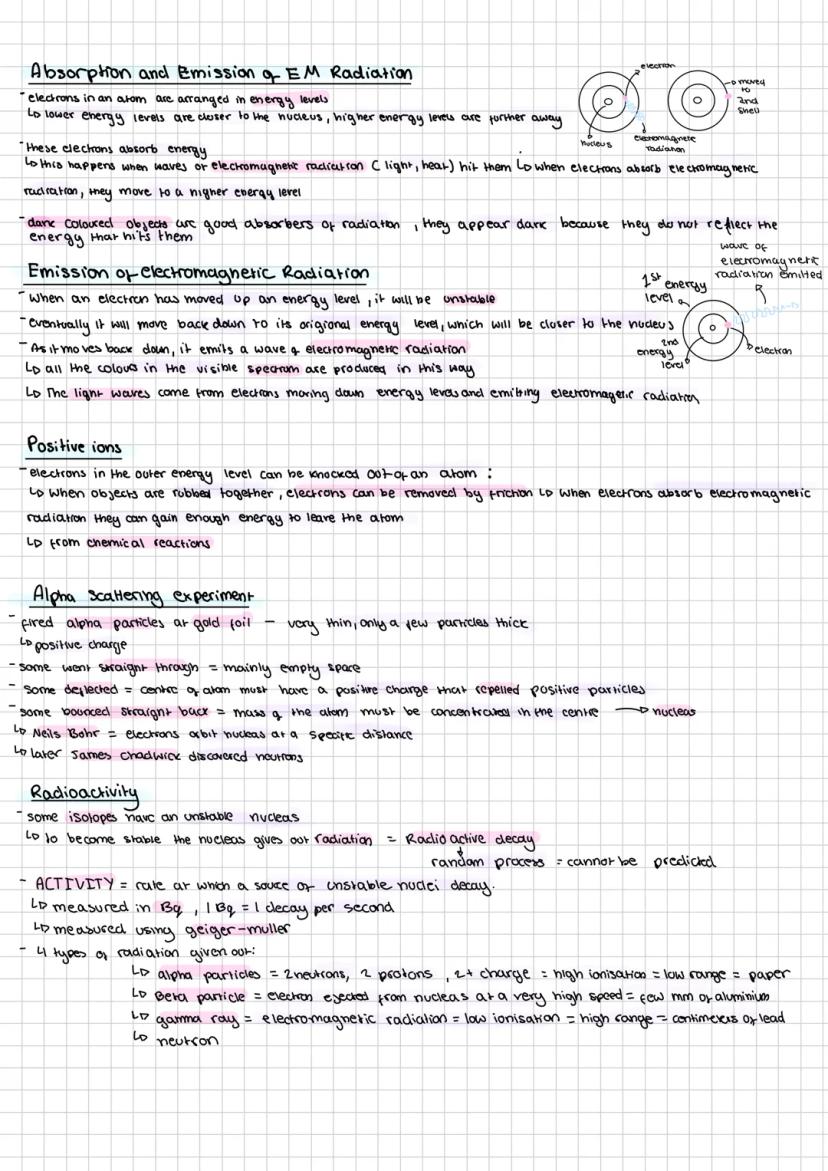 Absorption and Emission of EM Radiation
electron
moved
to
2nd
shell
nucleus
electromagnetic
radiation
- electrons in an atom are arranged in energy levels
↳ lower energy levels are closer to the nucleus, higher energy levels are further away
- these electrons absorb energy
↳ this happens when waves of electromagnetic radiation (light, heat) hit them ↳ when electrons absorb electromagnetic
radiation, they move to a higher energy level
- dark coloured objects are good absorbers of radiation, they appear dark because they do not reflect the
energy that hits them
Emission of electromagnetic Radiation
wave of
electromagnetic
radiation emitted
1st energy
level
2nd
energy
level
electron
- when an electron has moved up an energy level, it will be unstable
- eventually it will move back down to its origional energy level, which will be closer to the nucleus
- As it moves back down, it emits a wave of electromagnetic radiation
↳ all the colours in the visible spectrum are produced in this way
↳ The light waves come from electrons moving down energy levels and emitting electromagetic radiation
Positive ions
- electrons in the outer energy level can be knocked out of an atom :
↳ when objects are rubbed together, electrons can be removed by friction ↳ when electrons absorb electromagnetic
radiation they can gain enough energy to leave the atom
↳ from chemical reactions
Alpha scattering experiment
- fired alpha particles at gold foil - very thin, only a few particles thick
↳ positive charge
- some went straight through = mainly empty space
- some deflected = centre of atom must have a positive charge that repelled positive particles
- some bounced straight back = mass of the atom must be concentrated in the centre → nucleas
↳ Neils Bohr = electrons orbit nucleas at a specific distance
↳ later James chadwick discovered neutrons
Radioactivity
- some isotopes have an unstable nucleas
↳ to become stable the nucleas gives out radiation = Radioactive decay
random process = cannot be predicted
- ACTIVITY = rate at which a souce of unstable nuclei decay.
↳ measured in Bq, 1 Bq = 1 decay per second
↳ measured using geiger-muller
- 4 types of radiation given out:
↳ alpha particles = 2 neutrons, 2 protons, 2+ charge = high ionisation = low range = paper
↳ Beta particle = electron ejected from nucleas at a very high speed = few mm of aluminium
↳ gamma ray = electromagnetic radiation = low ionisation = high range = centimeters of lead
↳ neutron